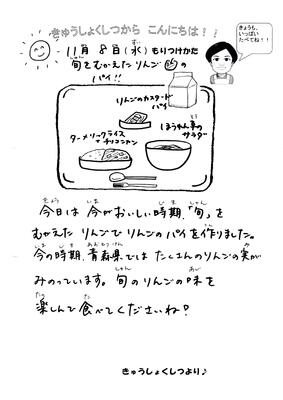 きゅうしょくしつから こんにちは！！
きょうも、
いっぱい
たべてね！！
11月 8日(水) もりつけかた
旬をむかえたりんご🍎の
パイ!!
りんごのカスタード
パイ
ほうれん草の
サラダ
ターメリックライス
チリコンカン
今日は 今がおいしい時期、「旬」を
むかえた りんごでりんごのパイを作りました。
今の時期、青森県では たくさんのりんごの実が
みのっています。旬のりんごの味を
楽しんで食べてくださいね？
きゅうしょくしつより♪